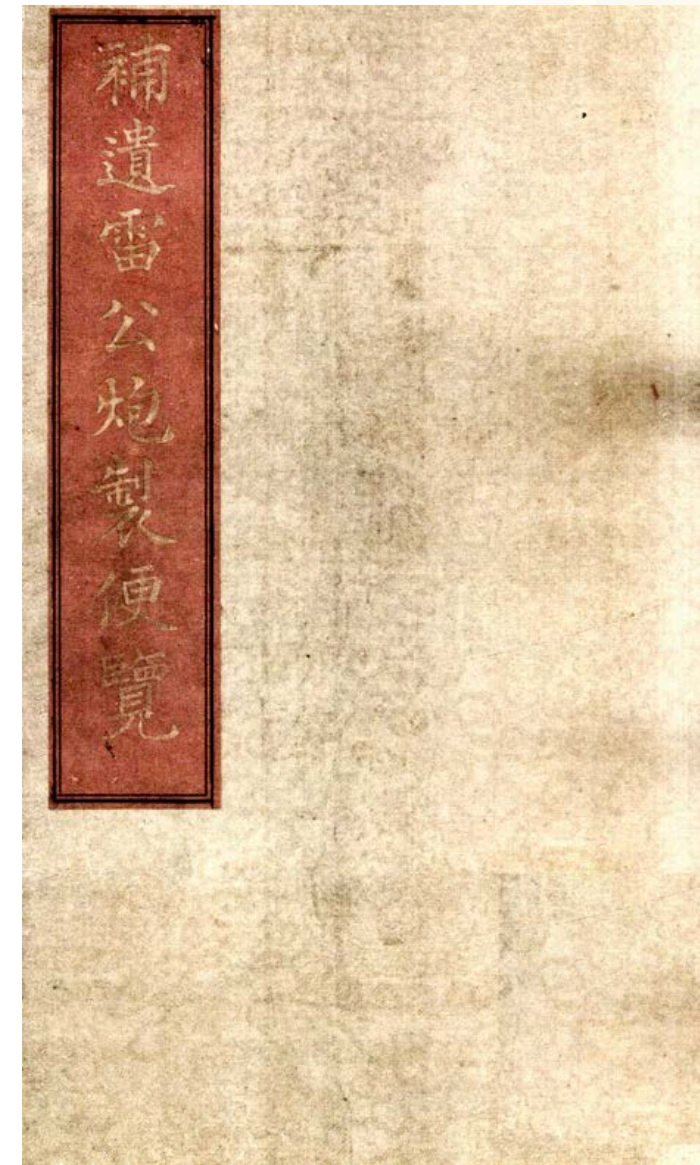 補遺雷公炮製便覽